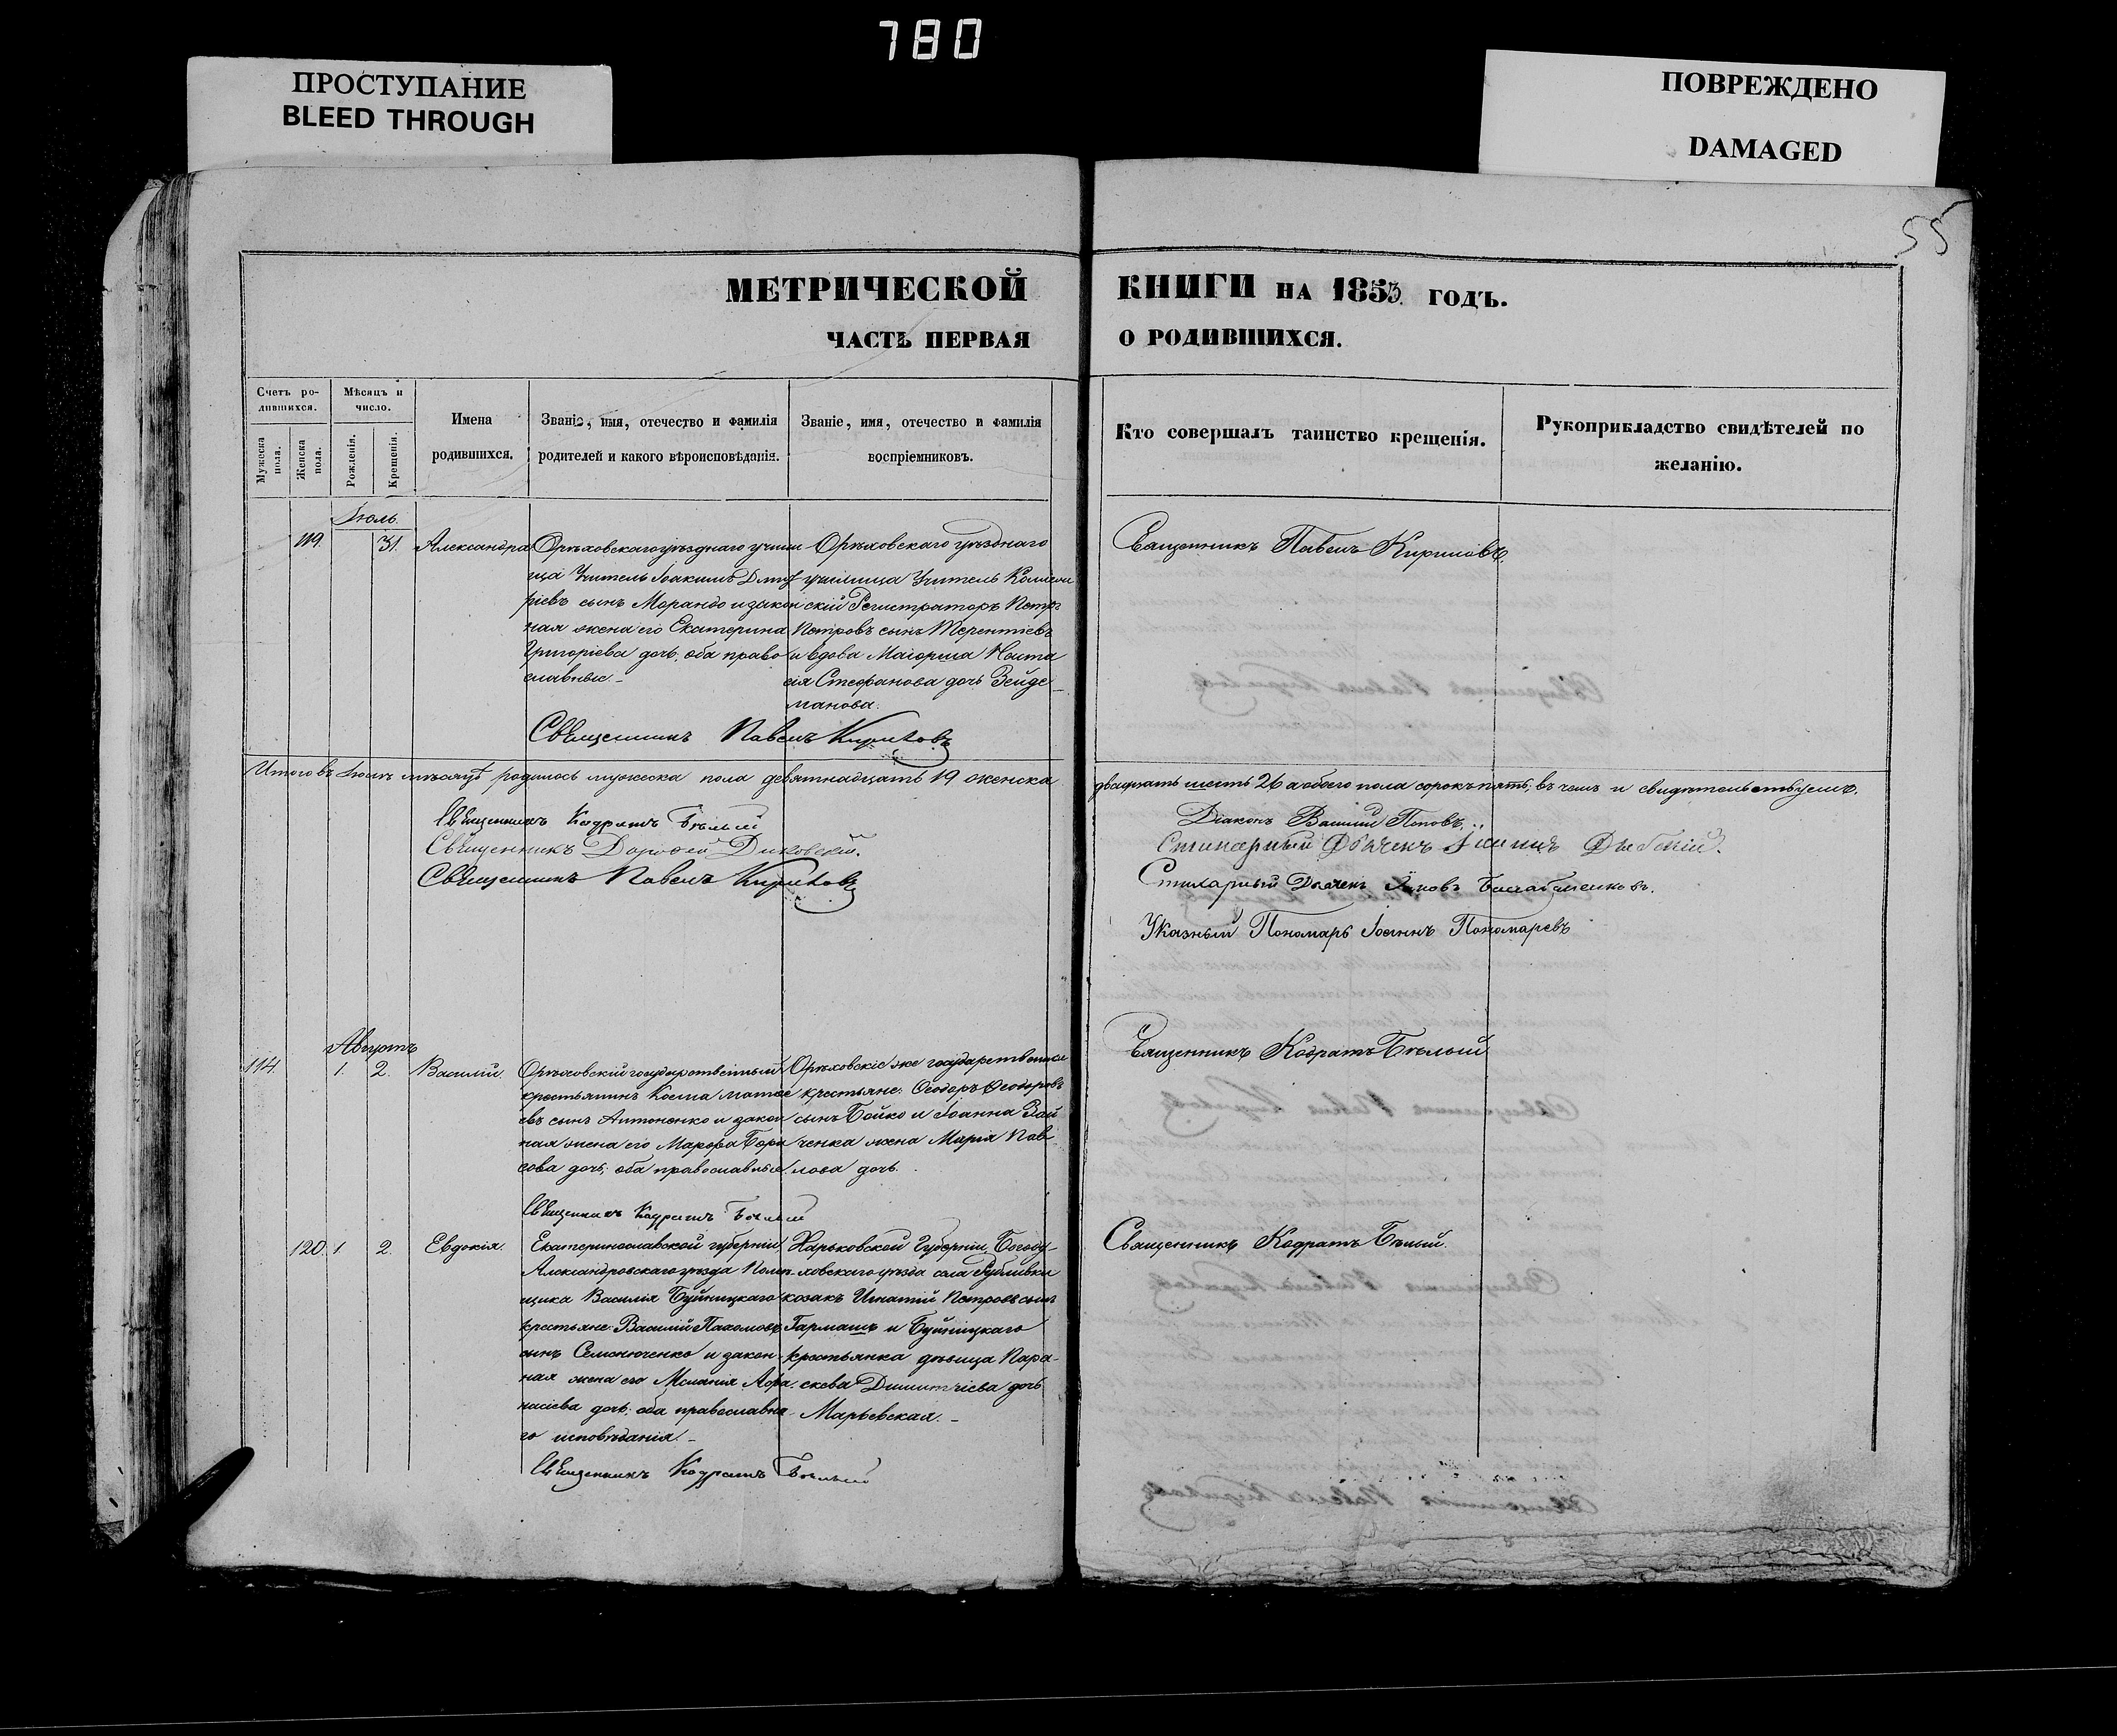 780
ПРОСТУПАНИЕ
BLEED THROUGH
ПОВРЕЖДЕНО
DAMAGED
55
МЕТРИЧЕСКОЙ КНИГИ НА 1853 ГОДЪ.
ЧАСТЬ ПЕРВАЯ О РОДИВШИХСЯ.
Счетъ ро-
дившихся.
Мужеска пола.
Женска пола.
Мѣсяцъ и
число.
Рожденія.
Крещенія.
Имена
родившихся.
Званіе, имя, отечество и фамилія
родителей и какого вѣроисповѣданія.
Званіе, имя, отечество и фамилія
воспріемниковъ.
Кто совершалъ таинство крещенія.
Рукоприкладство свидѣтелей по
желанію.
Іюль.
119. 31. Александра
Орѣховскаго уѣзднаго учили
ща Учитель Іоакимъ Дмит
ріевъ сынъ Морандо и закон
ная жена его Екатерина
Григоріева дочь, оба право
славные.-
Орѣховскаго уѣзднаго
училища Учитель Коллеж
скій Регистраторъ Петръ
Петровъ сынъ Терентіевъ
и вдова Маіорша Наста
сія Стефанова дочь Зейде
манова.
Священникъ Павелъ Кириловъ.
Священникъ Павелъ Кириловъ
Итого въ Іюлѣ мѣсяцѣ родилось мужеска пола девятнадцать 19 женска двадцать шесть 26 а обоего пола сорокъ пять; въ чемъ и свидѣтельствуемъ.
Священникъ Кодратъ Бѣлый
Священникъ Дорофей Диковскій.
Священникъ Павелъ Кириловъ
Діаконъ Василій Поповъ.
Стихарный Дьячекъ Іоаннъ
Стихарный Дьячекъ Яковъ
Указный Пономарь Іоаннъ Пономаревъ
Августъ
114. 1. 2. Василий.
Орѣховскій государственный
крестьянинъ Косма Матѳе
евъ сынъ Антоненко и закон
ная жена его Марфа Бори
сова дочь; оба православные
Орѣховскіе же государственные
крестьяне: Ѳеодоръ Ѳеодоровъ
сынъ Бойко и Іоанна Зай
ченка жена Марія Пав
лова дочь.
Священникъ Кодратъ Бѣлый
Священникъ Кодратъ Бѣлый
120. 1. 2. Евдокія.
Екатеринославской губерніи
Александровскаго уѣзда Помѣ-
щика Василія Буйницкаго
крестьяне: Василій Пахомовъ
сынъ Семенюченко и закон-
ная жена его Меланія Афа-
насіева дочь; оба православна-
го исповѣданія.-
Харьковской Губерніи Богоду-
ховскаго уѣзда села Рублевки
козакъ Игнатій Петровъ сынъ
Гармашъ и Буйницкаго
крестьянка дѣвица Пара-
скева Димитріева дочь
Марьевская.-
Священникъ Кодратъ Бѣлый.
Священникъ Кодратъ Бѣлый